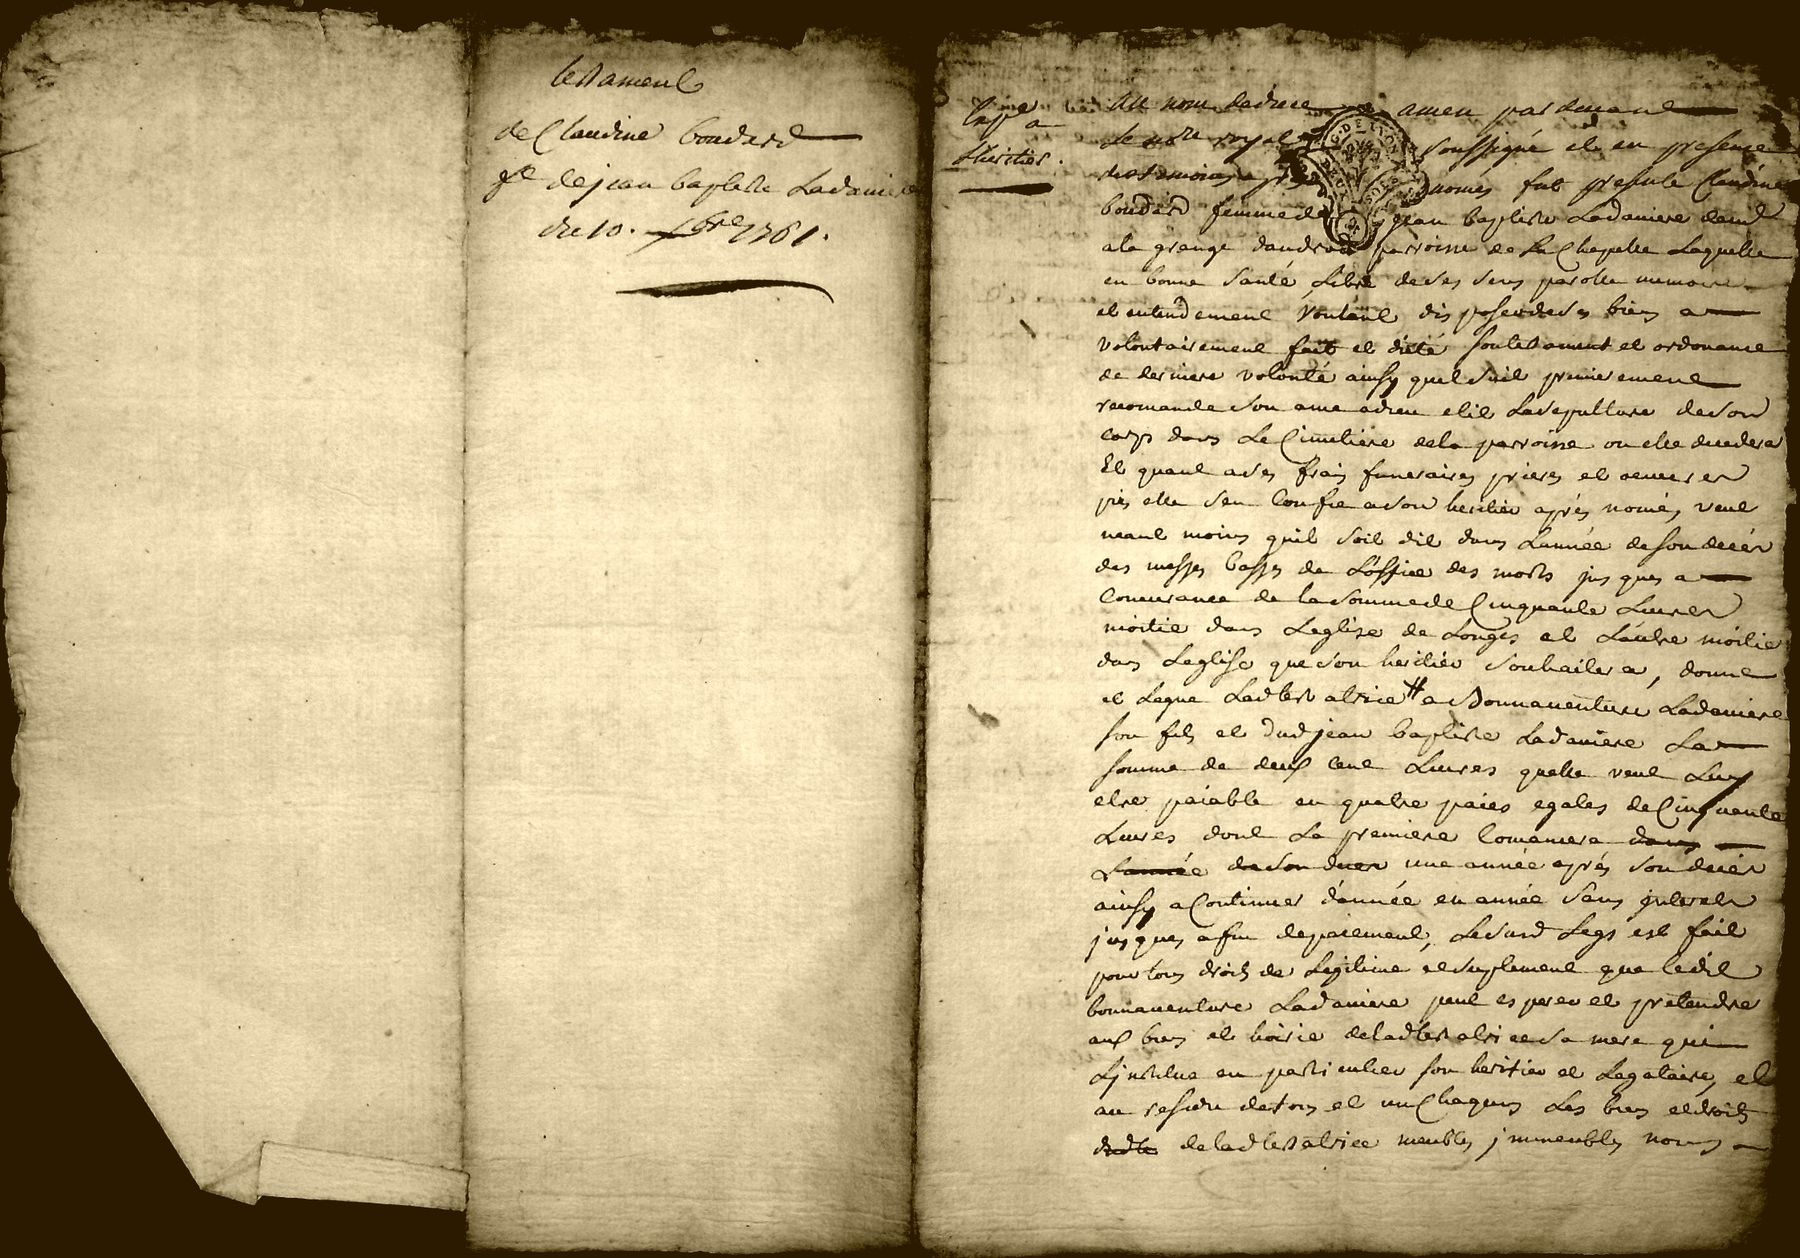 testament
de Claudine boudard
fe de jean baptiste Ladaniere
du 10. 1761.
Exp a
Lheritier.
Au nom de dieu amen pardevant
Le nore royal soussigné et en presence
des temoins apres només fut presente Claudine
boudard femme de jean baptiste Ladaniere demt
ala grange parroisse de La Chapelle Laquelle
en bonne santé Libre de ses sens parolle memoire
et entendement voulant disposer de ses biens a
volontairement fait et dicté son testament et ordonance
de derniere volonté ainsy quel suit premierement
recomande son ame a dieu elit La sepulture de son
corps dans Le Cimetiere dela parroisse ou elle decedera
Et quant a ses frais funeraires prieres et oeuvres
pies elle sen Confie a son heritier aprés nomé, veut
neant moins quil soit dit dans Lannée de son decés
des messes basses de Loffice des morts jusques a
Concurance de la somme de Cinquante Livres
moitié dans Leglise de Longes et Lautre moitié
dans Leglise que son heritier souhaitera, donne
et Legue Ladtestatrice # a Bonnaventure Ladaniere
son fils et dud jean baptiste Ladaniere La
somme de deux cent Livres quelle veut Luy
etre paiable en quatre paies egales de Cinquante
Livres dont La premiere Comancera dans
Lannée de son deces une année aprés son decés
ainsy a Continuer dannée en année sans interets
jusques a fin depaiement, Le susd Legs est fait
pour tous droits de Legitime et suplement que ledit
bonnaventure Ladaniere peut esperer et pretendre
aux biens et hoirie deladtestatrice sa mere qui
Linstitue en particulier son heritier et Legataire, et
au residu de tous et un Chaquns Les biens et droits
deladtestatrice meubles immeubles noms